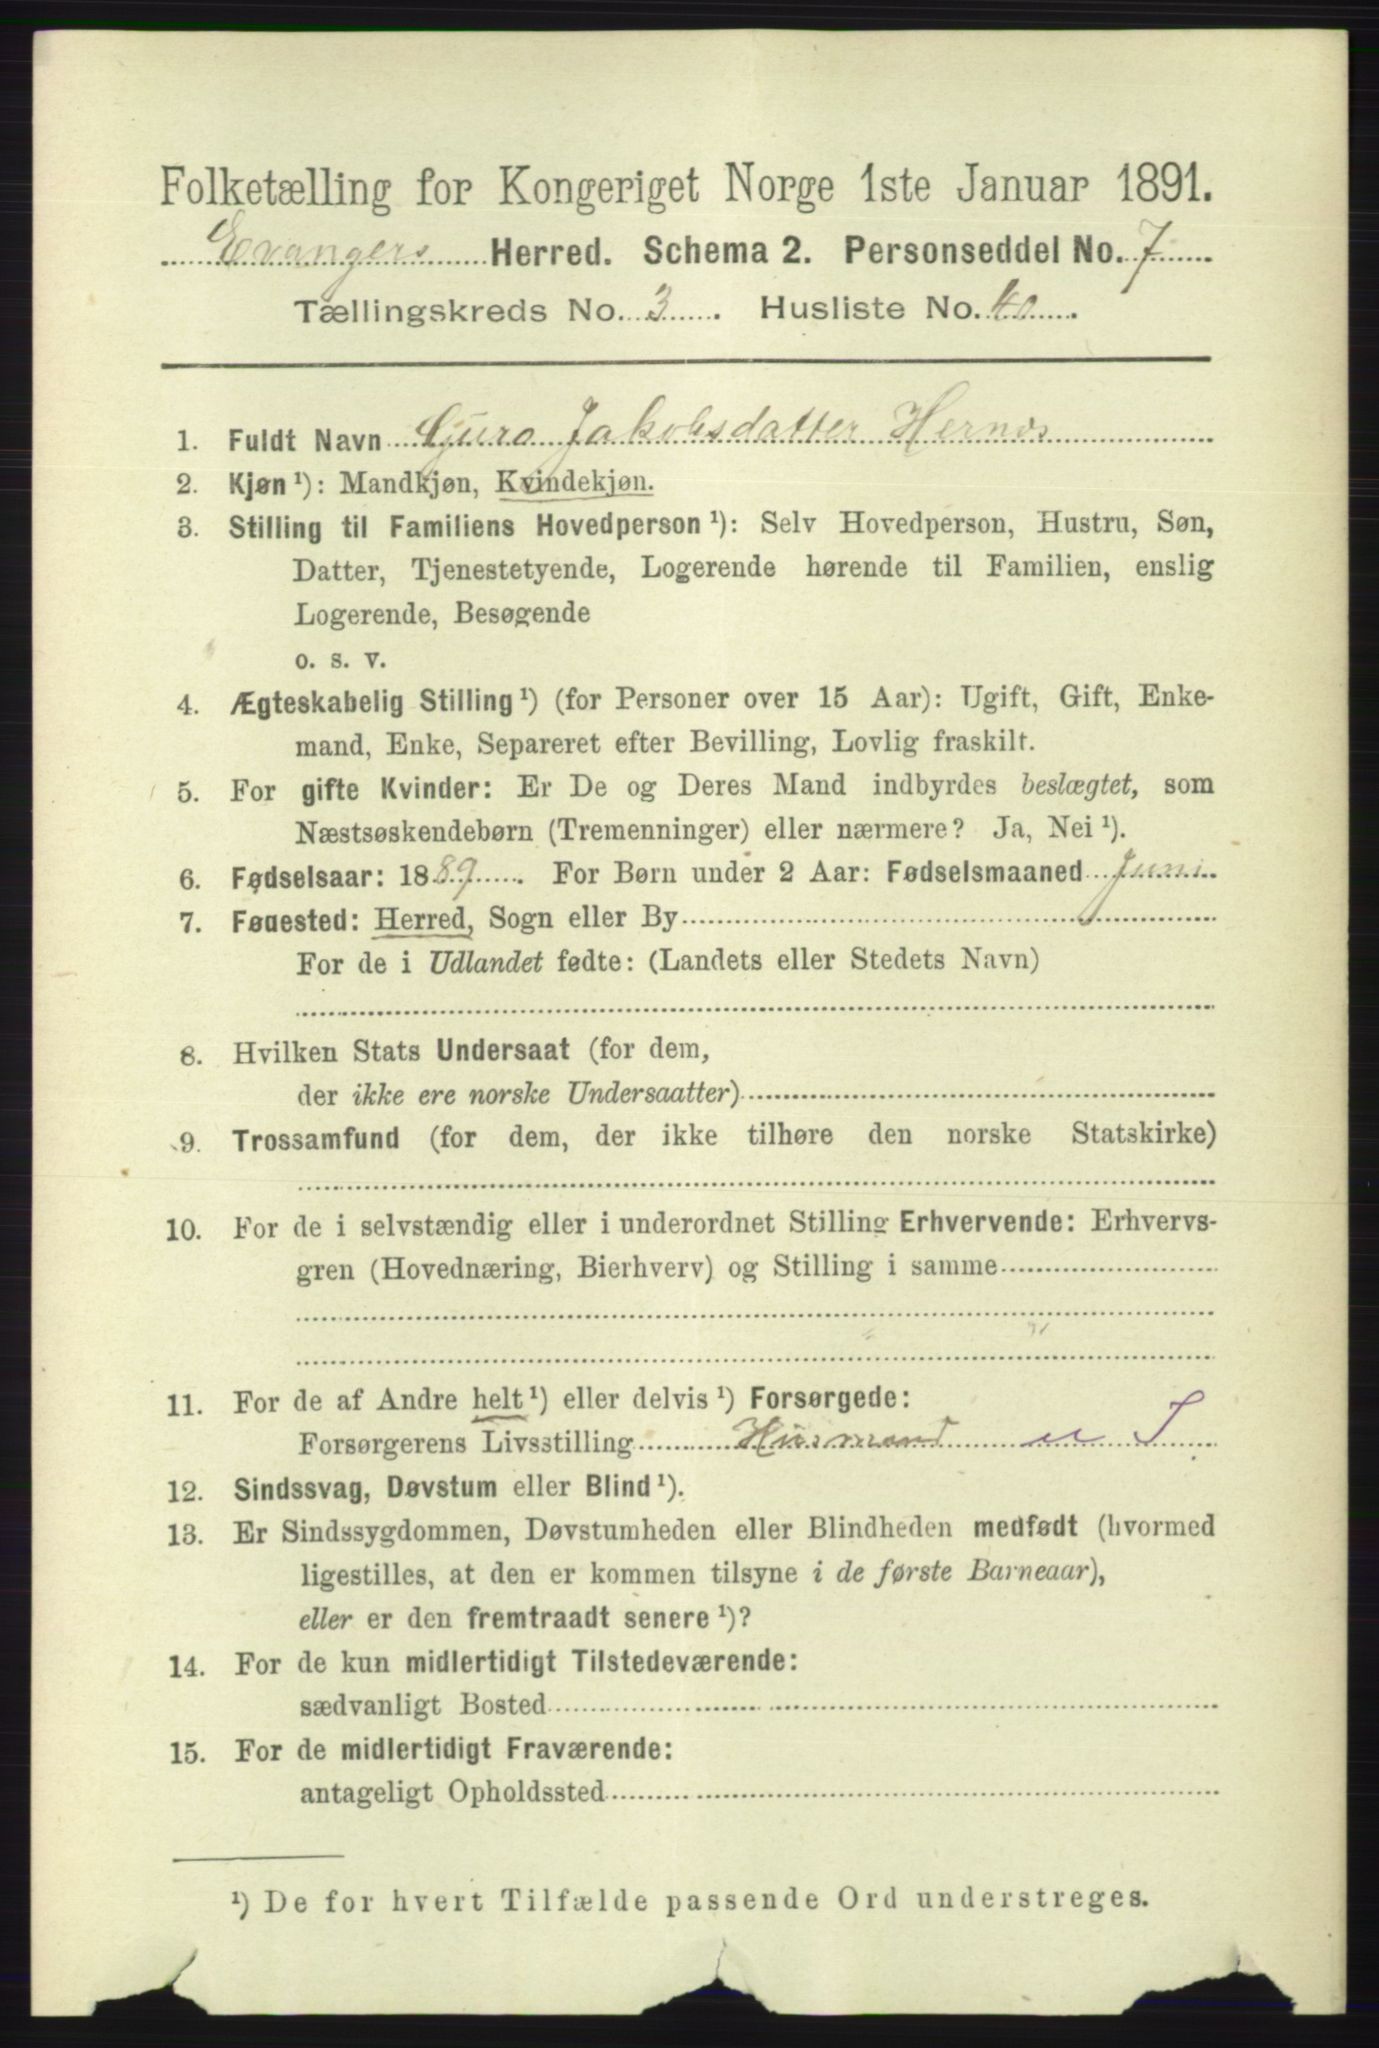 Folketælling for Kongeriget Norge 1ste Januar 1891.
Evangers Herred. Schema 2. Personseddel No. 7
Tællingskreds No. 3. Husliste No. 40.
1. Fuldt Navn Guro Jakobsdatter Hernes
2. Kjøn ¹): Mandkjøn, Kvindekjøn.
3. Stilling til Familiens Hovedperson ¹): Selv Hovedperson, Hustru, Søn,
Datter, Tjenestetyende, Logerende hørende til Familien, enslig
Logerende, Besøgende
o. s. v.
4. Ægteskabelig Stilling ¹) (for Personer over 15 Aar): Ugift, Gift, Enke-
mand, Enke, Separeret efter Bevilling, Lovlig fraskilt.
5. For gifte Kvinder: Er De og Deres Mand indbyrdes beslægtet, som
Næstsøskendebørn (Tremenninger) eller nærmere? Ja, Nei ¹).
6. Fødselsaar: 1889. For Børn under 2 Aar: Fødselsmaaned Juni
7. Fødested: Herred, Sogn eller By
For de i Udlandet fødte: (Landets eller Stedets Navn)
8. Hvilken Stats Undersaat (for dem,
der ikke ere norske Undersaatter)
9. Trossamfund (for dem, der ikke tilhøre den norske Statskirke)
10. For de i selvstændig eller i underordnet Stilling Erhvervende: Erhvervs-
gren (Hovednæring, Bierhverv) og Stilling i samme
11. For de af Andre helt ¹) eller delvis ¹) Forsørgede:
Forsørgerens Livsstilling Husmand
12. Sindssvag, Døvstum eller Blind ¹).
13. Er Sindssygdommen, Døvstumheden eller Blindheden medfødt (hvormed
ligestilles, at den er kommen tilsyne i de første Barneaar),
eller er den fremtraadt senere ¹)?
14. For de kun midlertidigt Tilstedeværende:
sædvanligt Bosted
15. For de midlertidigt Fraværende:
antageligt Opholdssted
¹) De for hvert Tilfælde passende Ord understreges.